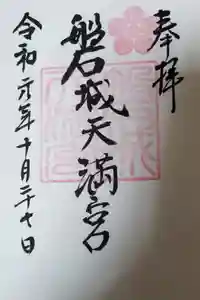 奉拝
盤城天満宮
令和元年十月二十七日